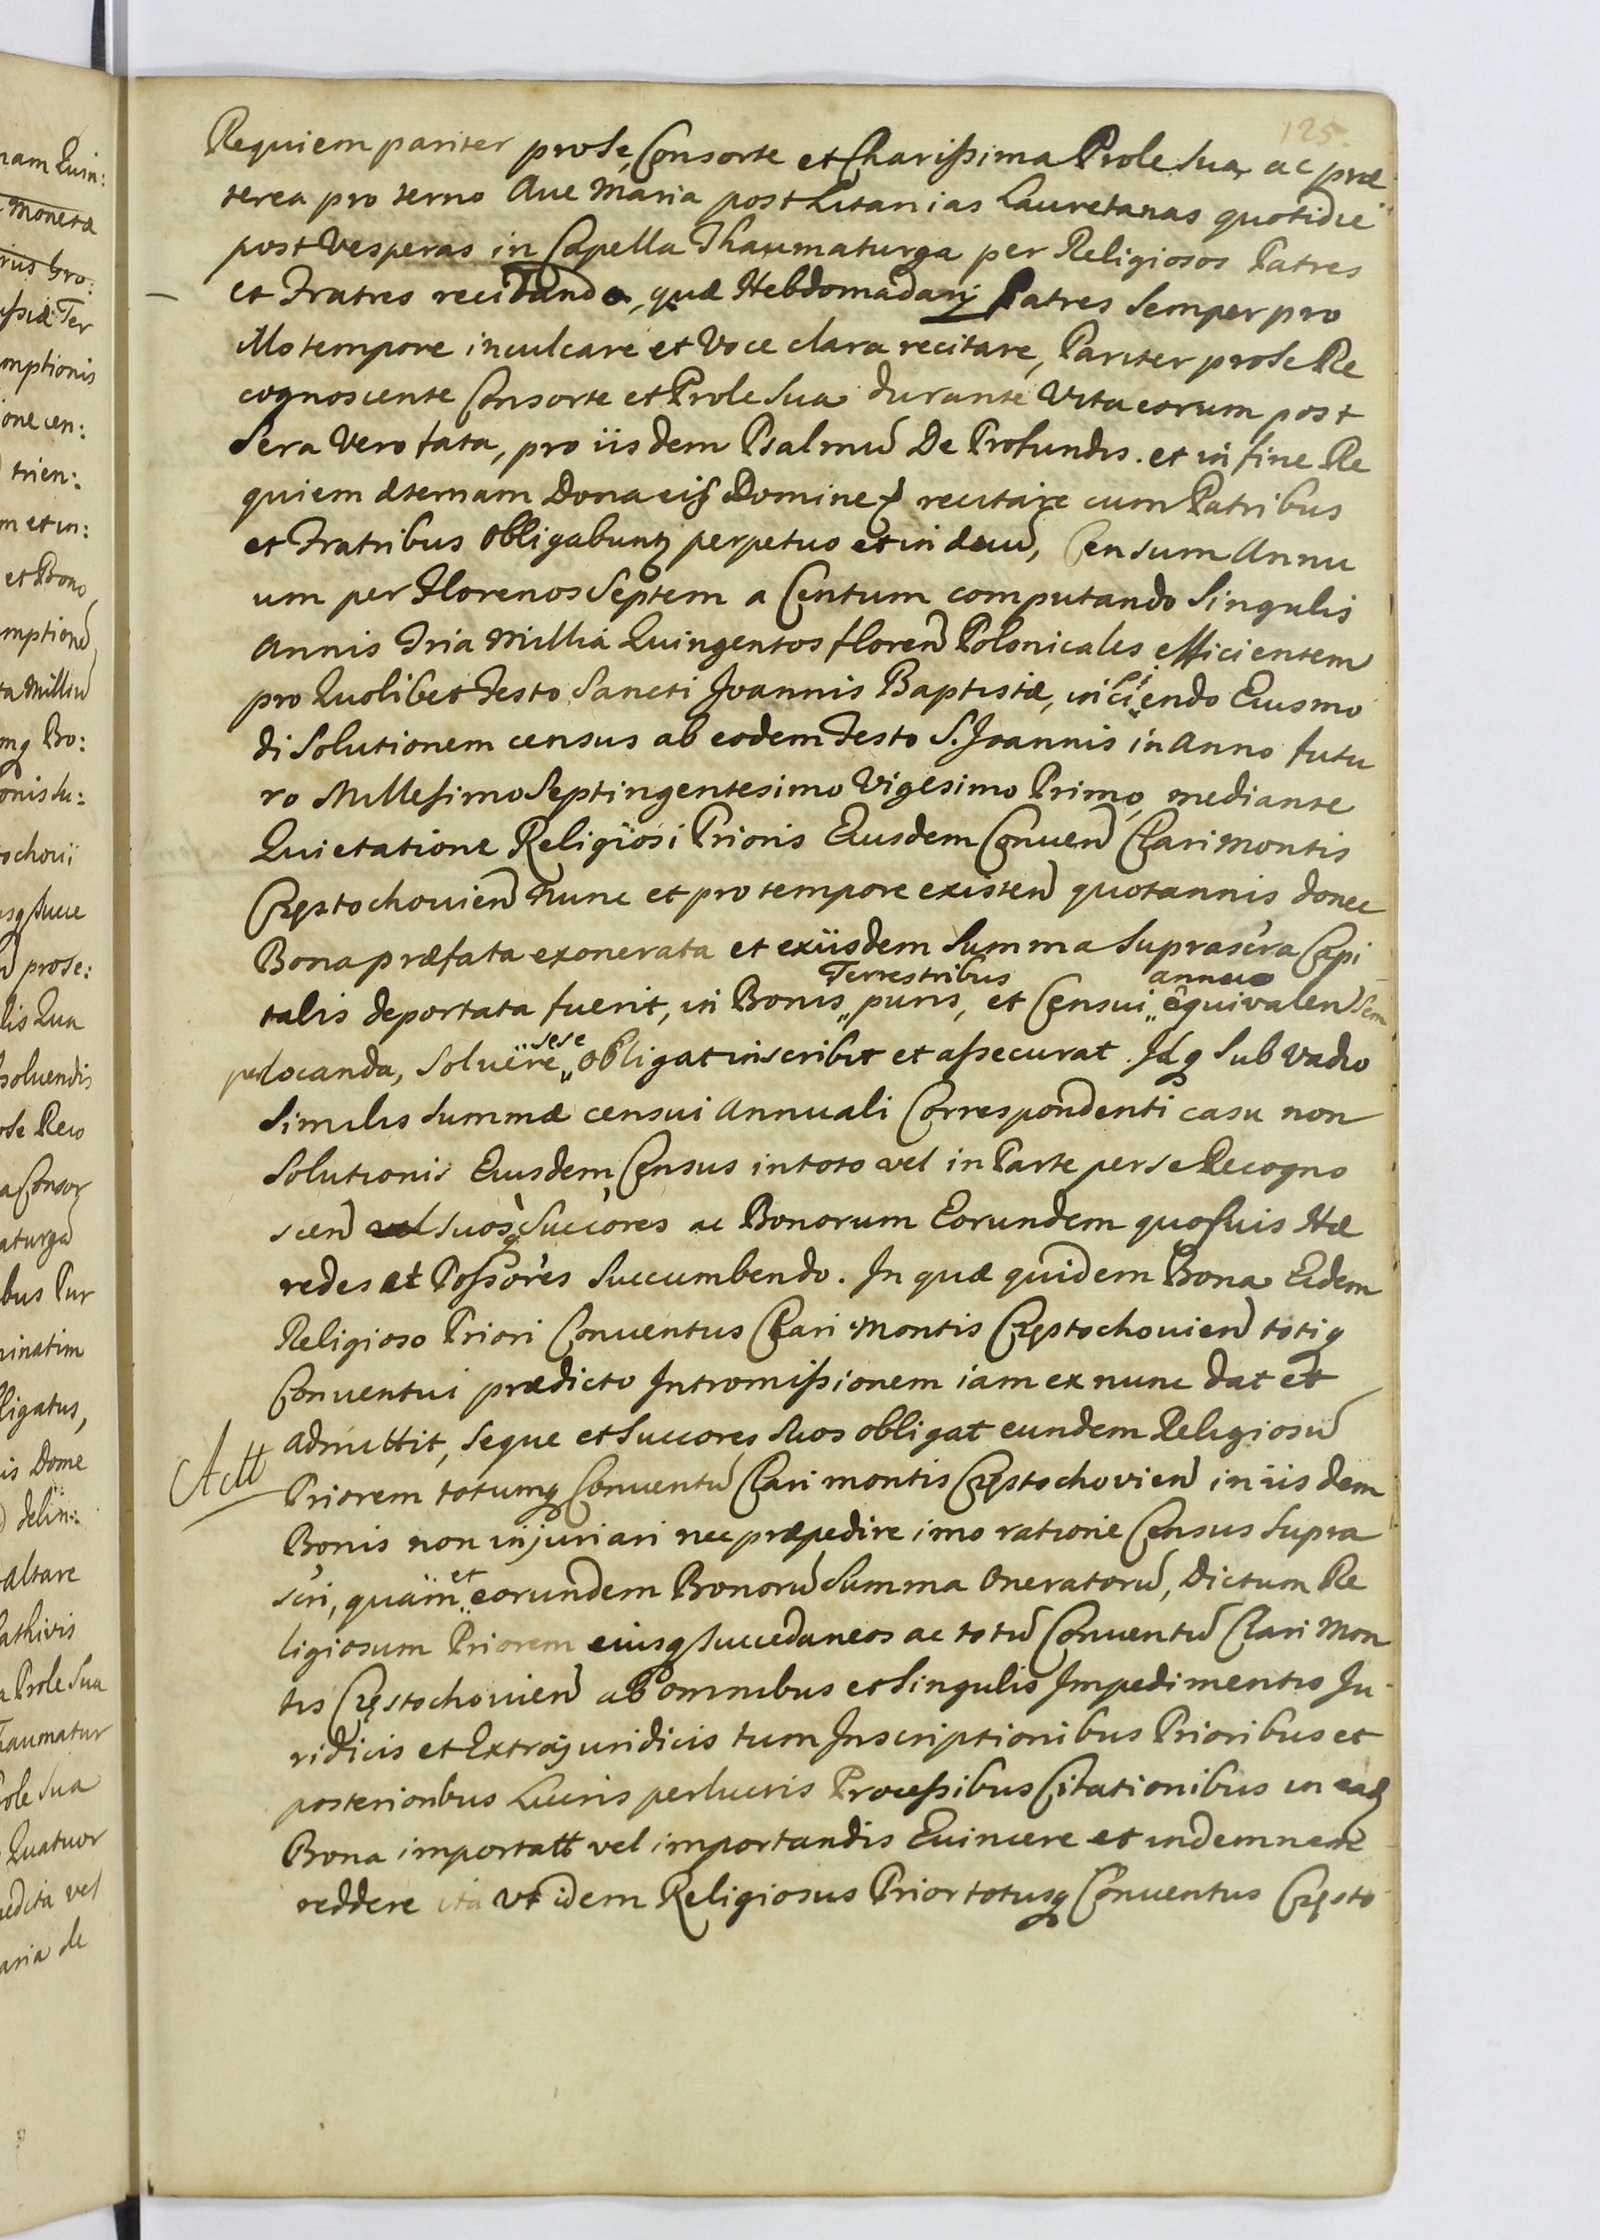 125.
Requiem pariter pro se, Consorte et Charissima Prole sua, ac præ
terea pro terno Ave Maria post Litanias Lauretanas quotidie
post Vesperas in Capella Thaumaturga per Religiosos Patres
et Fratres recitando, quæ Hebdomadarij Patres semper pro
illo tempore inculcare et voce clara recitare, Pariter pro se Re
cognoscente Consorte et Prole sua durante Vita eorum post
sera vero fata, pro iisdem Psalmũ De Profundis. et in fine Re
quiem æternam Dona eis Domine recitare cum Patribus
et Fratribus obligabuntꝫ perpetuo et in æuũ, Censum Annu
um per Florenos Septem a Centum computando Singulis
Annis Tria Millia Quingentos floren Polonicales efficientem
pro Quolibet Festo Sancti Joannis Baptistæ, incipiendo Eiusmo
di Solutionem census ab eodem Festo S. Joannis in Anno futu
ro Millesimo Septingentesimo Vigesimo Primo, mediante
Quietatione Religiosi Prioris Eiusdem Conuen Clari Montis
Częstochouien Nunc et pro tempore existen quotannis donec
Bona præfata exonerata et ex iisdem Summa suprascra Capi
Terrestribus annuo
talis deportata fuerit, in Bonis „ puris, et Censui „ equivalen Sem
sese
per locanda, Soluere „ obligat inscribit et assecurat. Idq sub vadio
similis summæ censui Annuali Correspondenti casu non
Solutionis Eiusdem Census in toto vel in Parte per se Recogno
scen vel suosq Succores ac Bonorum Eorundem quosuis Hæ
redes et Possores succumbendo. In quæ quidem Bona Eidem
Religioso Priori Conuentus Clari Montis Częstochouien totiq
Conuentui prædicto Intromissionem iam ex nunc dat et
admittit, seque et Succores suos obligat eundem Religiosũ
Actt
Priorem totumq Conuentũ Clari montis Częstochovien in iisdem
Bonis non injuriari nec præpedire imo ratione Census supra
et
scri, quam „ eorundem Bonorũ Summa Oneratorũ, Dictum Re
ligiosum Priorem eiusq Succedaneos ac totũ Conuentũ Clari Mon
tis Częstochouien ab omnibus et Singulis Impedimentis Ju
ridicis et Extrajuridicis tum Inscriptionibus Prioribus et
posterioribus Lucris perlucris Processibus Citationibus in eadꝫ
Bona importatt vel importandis Euincere et indemnem
reddere ita vt idem Religiosus Prior totusq Conuentus Często